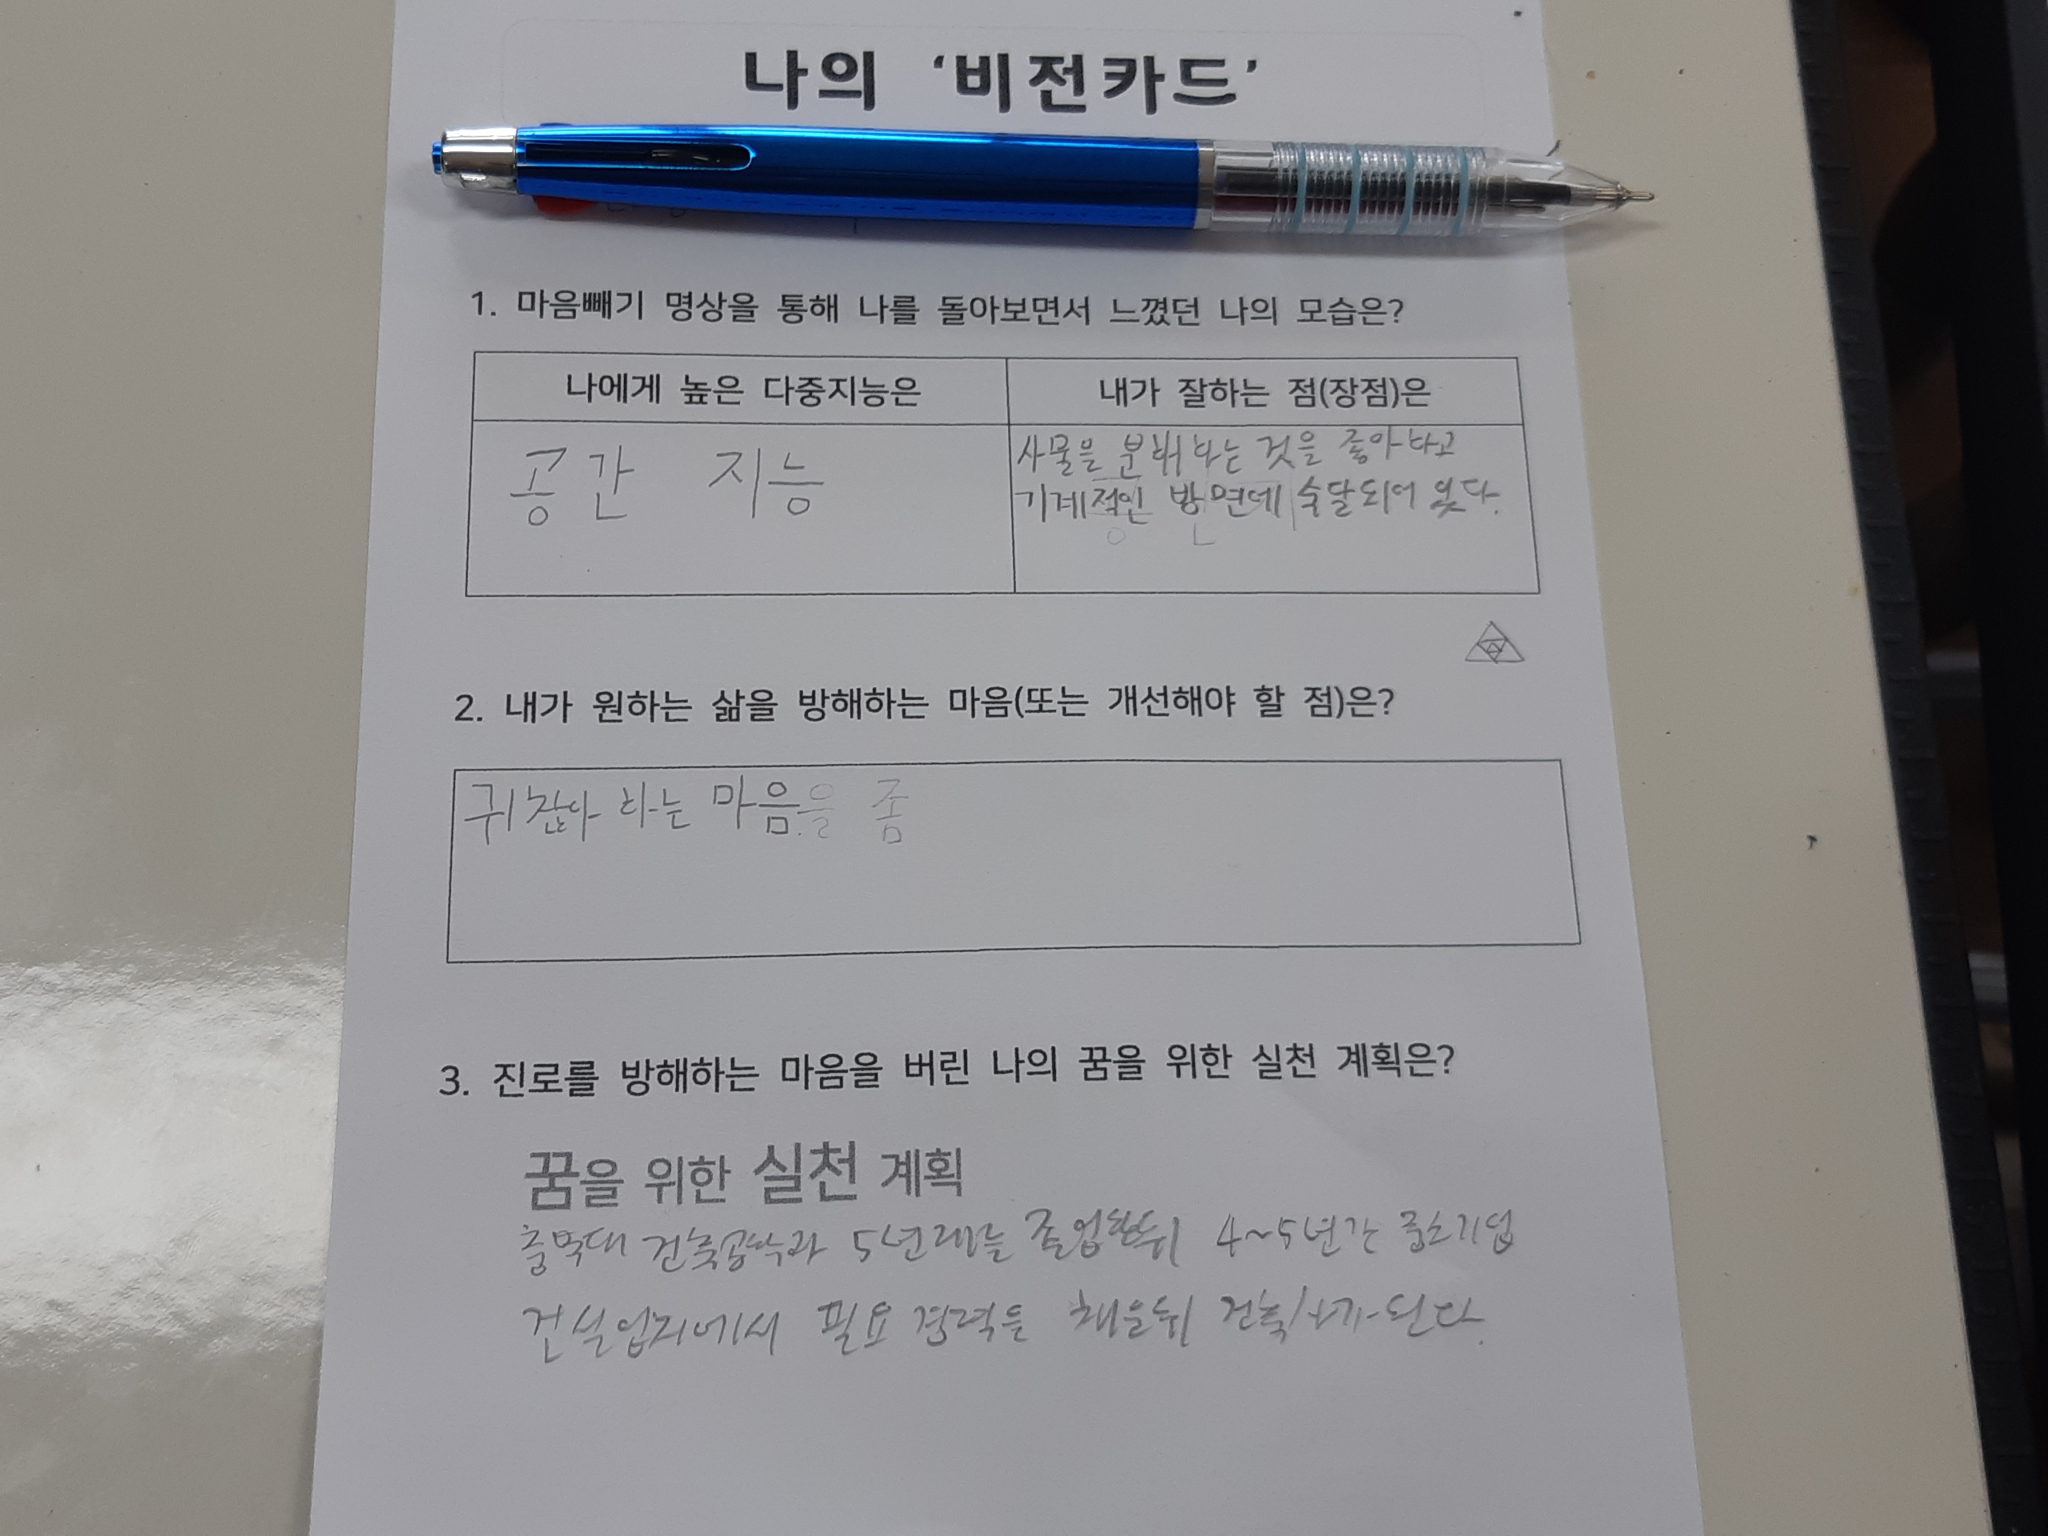 나의 '비전카드'
1. 마음빼기 명상을 통해 나를 돌아보면서 느꼈던 나의 모습은?
나에게 높은 다중지능은
내가 잘하는 점(장점)은
공간 지능
사물을 분해 하는 것을 좋아하고
기계적인 방면에 숙달되어 있다.
2. 내가 원하는 삶을 방해하는 마음(또는 개선해야 할 점)은?
귀찮아 하는 마음을 좀
3. 진로를 방해하는 마음을 버린 나의 꿈을 위한 실천 계획은?
꿈을 위한 실천 계획
충북대 건축공학과 5년 졸업한뒤 4~5년간 중소기업
건설업지에서 필요 경력을 채운뒤 건축사가 된다.